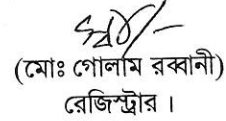 (মোঃ গোলাম রব্বানী)
রেজিস্ট্রার ।